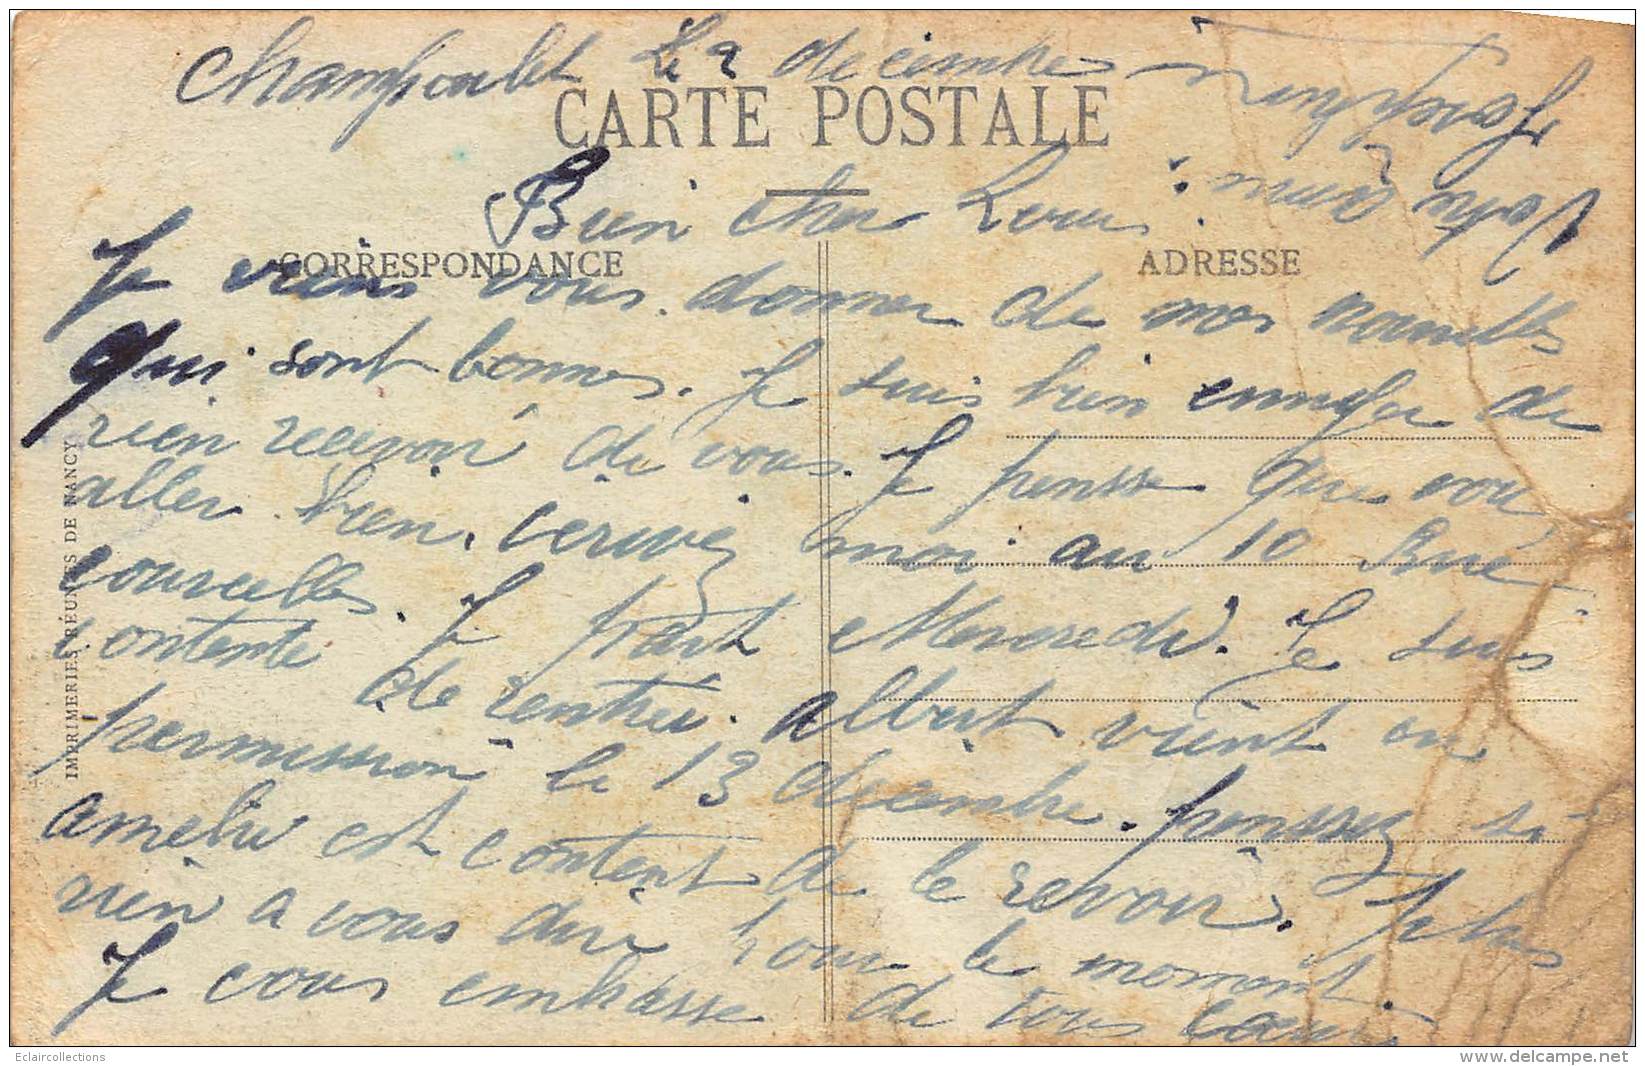 Champoulet le 2 decembre
CARTE POSTALE
Votre amie
Bien cher Louis
CORRESPONDANCE
ADRESSE
Je viens vous donner de mes nouvelles
qui sont bonnes. Je suis bien ennuyer de
rien recevoir de vous. Je pensse que vou
aller bien. ecrivez moi au 10 Rue
courcelles. Je part Mercredi. Je suis
contente de rentrer. albert vient en
permission le 13 decembre. penssez si
amelie est content de le revoir. plus
rien a vous dire pour le moment.
Je vous embrasse de tous cœur
IMPRIMERIES RÉUNIES DE NANCY
Eclaircollections
www.delcampe.net